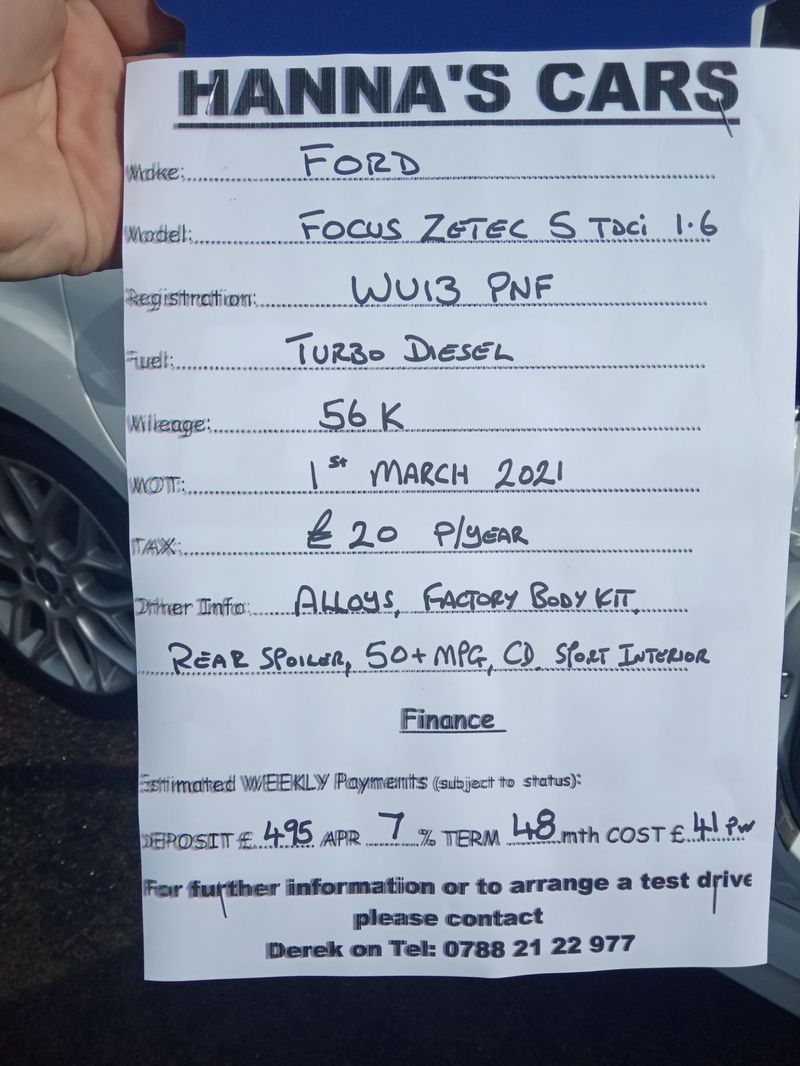 HANNA'S CARS
Make: FORD
Model: FOCUS ZETEC S TDCi 1.6
Registration: WU13 PNF
Fuel: TURBO DIESEL
Mileage: 56K
MOT: 1st MARCH 2021
TAX: £20 P/YEAR
Other Info: ALLOYS, FACTORY BODY KIT,
REAR SPOILER, 50+ MPG, CD. SPORT INTERIOR
Finance
Estimated WEEKLY Payments (subject to status):
DEPOSIT £ 495 APR 7 % TERM 48 mth COST £ 41 PW
For further information or to arrange a test drive
please contact
Derek on Tel: 0788 21 22 977